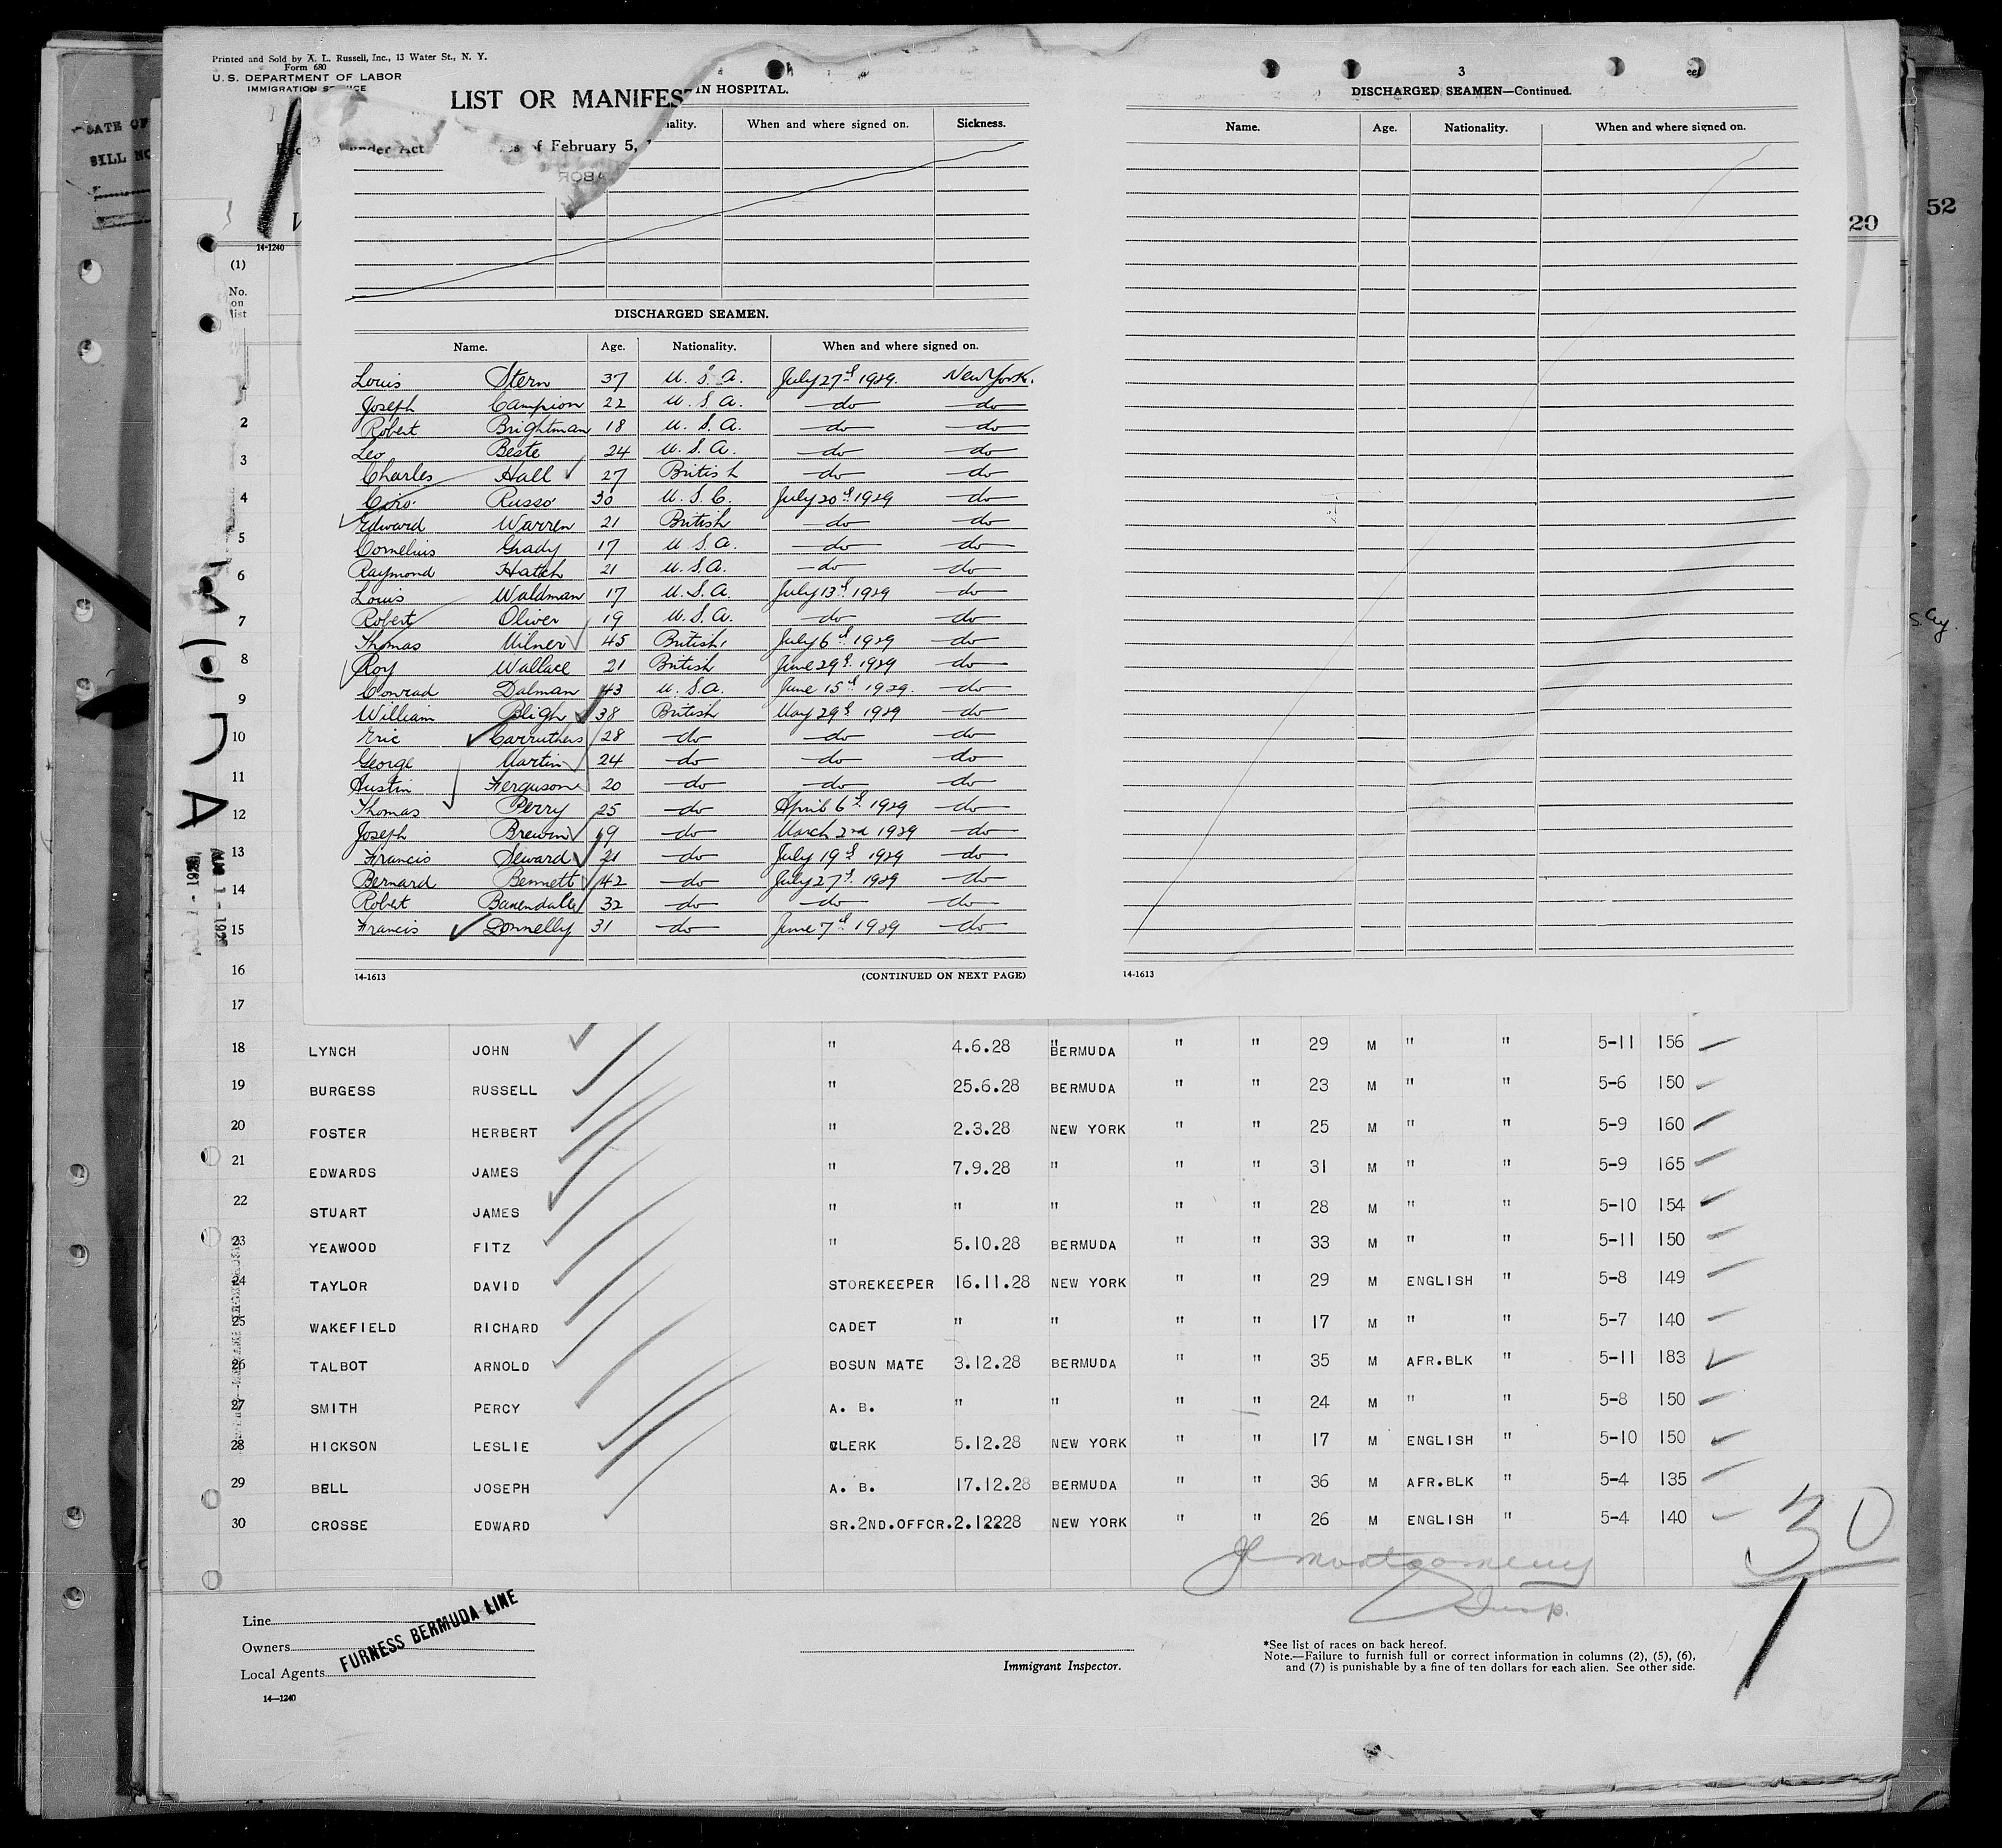 Printed and Sold by A. L. Russell, Inc., 13 Water St., N. Y.
Form 680
U. S. DEPARTMENT OF LABOR
IMMIGRATION
LIST OR MANIFES
IN HOSPITAL.
When and where signed on. Sickness.
under Act of February 5,
14-1240
(1)
No. on list
DISCHARGED SEAMEN.
Name. Age. Nationality. When and where signed on.
Louis Stern 37 U. S. A. July 27th 1929. New York.
Joseph Campion 22 U. S. A. —do— —do—
Robert Brightman 18 U. S. A. —do— —do—
Leo Beste 24 U. S. A. —do— —do—
Charles Hall 27 British —do— —do—
Ciro Russo 30 U. S. C. July 20th 1929 —do—
Edward Warren 21 British —do— —do—
Cornelius Grady 17 U. S. A. —do— —do—
Raymond Hatch 21 U. S. A. —do— —do—
Louis Waldman 17 U. S. A. July 13th 1929 —do—
Robert Oliver 19 U. S. A. —do— —do—
Thomas Milner 45 British July 6th 1929 —do—
Roy Wallace 21 British June 29th 1929 —do—
Conrad Dalman 43 U. S. A. June 15th 1929. —do—
William Bligh 38 British May 29th 1929 —do—
Eric Carruthers 28 —do— —do— —do—
George Martin 24 —do— —do— —do—
Austin Ferguson 20 —do— —do— —do—
Thomas Perry 25 —do— April 6th 1929 —do—
Joseph Brewin 19 —do— March 2nd 1929 —do—
Francis Seward 21 —do— July 19th 1929 —do—
Bernard Bennett 42 —do— July 27th 1929 —do—
Robert Baxendale 32 —do— —do— —do—
Francis Donnelly 31 —do— June 7th 1929 —do—
14-1613 (CONTINUED ON NEXT PAGE)
3
DISCHARGED SEAMEN—Continued.
Name. Age. Nationality. When and where signed on.
14-1613
20
52
2
3
4
5
6
7
8
9
10
11
12
13
14
15
16
17
18 LYNCH JOHN " 4.6.28 " BERMUDA " " 29 M " " 5-11 156
19 BURGESS RUSSELL " 25.6.28 BERMUDA " " 23 M " " 5-6 150
20 FOSTER HERBERT " 2.3.28 NEW YORK " " 25 M " " 5-9 160
21 EDWARDS JAMES " 7.9.28 " " " 31 M " " 5-9 165
22 STUART JAMES " " " " " 28 M " " 5-10 154
23 YEAWOOD FITZ " 5.10.28 BERMUDA " " 33 M " " 5-11 150
24 TAYLOR DAVID STOREKEEPER 16.11.28 NEW YORK " " 29 M ENGLISH " 5-8 149
25 WAKEFIELD RICHARD CADET " " " " 17 M " " 5-7 140
26 TALBOT ARNOLD BOSUN MATE 3.12.28 BERMUDA " " 35 M AFR.BLK " 5-11 183
27 SMITH PERCY A. B. " " " " 24 M " " 5-8 150
28 HICKSON LESLIE CLERK 5.12.28 NEW YORK " " 17 M ENGLISH " 5-10 150
29 BELL JOSEPH A. B. 17.12.28 BERMUDA " " 36 M AFR.BLK " 5-4 135
30 CROSSE EDWARD SR.2ND.OFFCR. 2.12228 NEW YORK " " 26 M ENGLISH " 5-4 140
30
Montgomery
Insp.
Line
Owners FURNESS BERMUDA LINE
Local Agents
14—1240
Immigrant Inspector.
*See list of races on back hereof.
Note.—Failure to furnish full or correct information in columns (2), (5), (6),
and (7) is punishable by a fine of ten dollars for each alien. See other side.